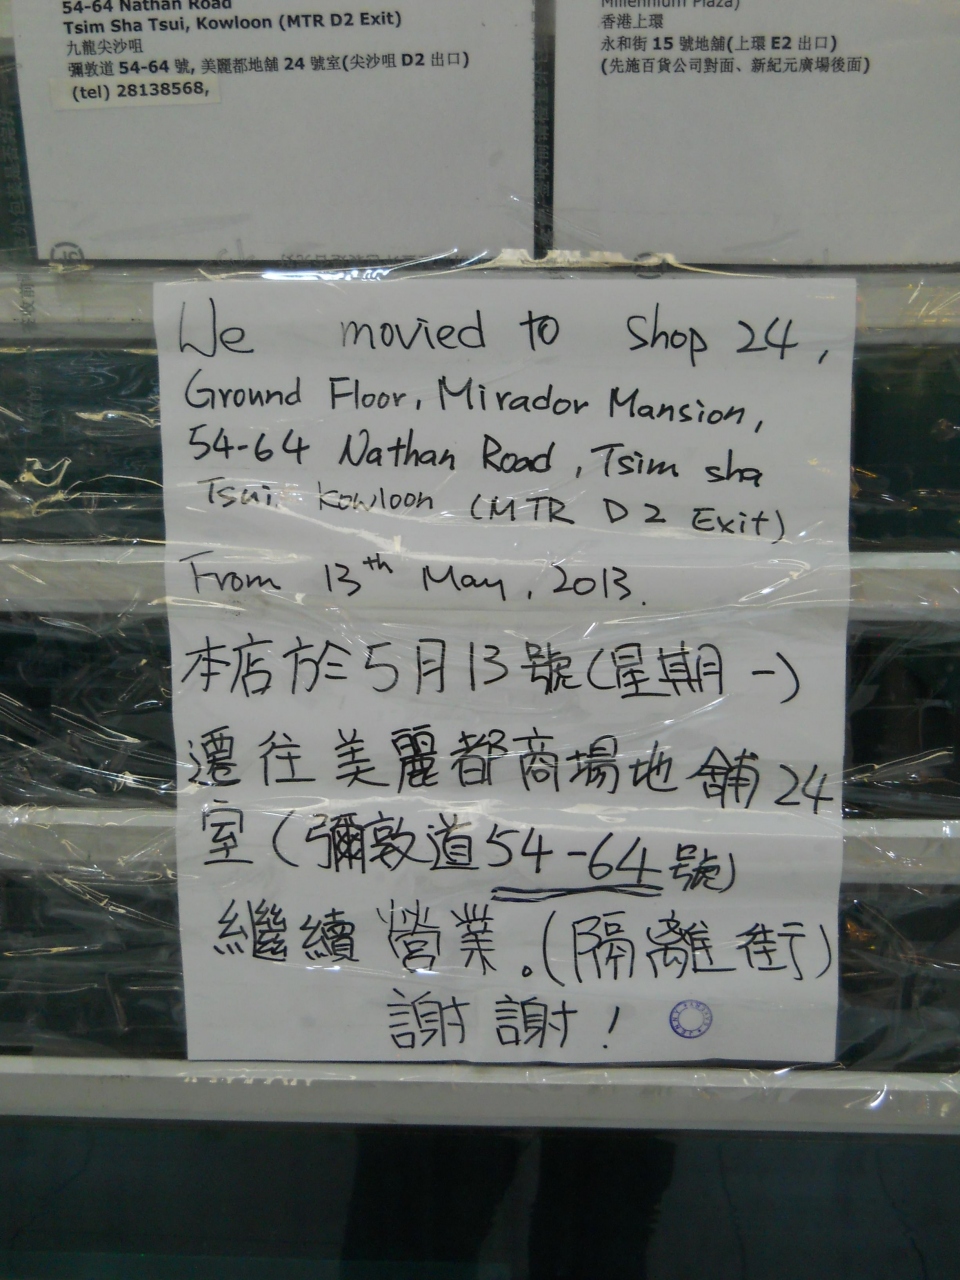 54-64 Nathan Road
Tsim Sha Tsui, Kowloon (MTR D2 Exit)
九龍尖沙咀
彌敦道 54-64 號, 美麗都地舖 24 號室(尖沙咀 D2 出口)
(tel) 28138568,
Millennium Plaza)
香港上環
永和街 15 號地舖(上環 E2 出口)
(先施百貨公司對面、新紀元廣場後面)
We movied to Shop 24,
Ground Floor, Mirador Mansion,
54-64 Nathan Road, Tsim sha
Tsui, Kowloon (MTR D2 Exit)
From 13th May, 2013.
本店於5月13號(星期一)
遷往美麗都商場地舖24
室(彌敦道54-64號)
繼續營業。(隔離街)
謝謝!